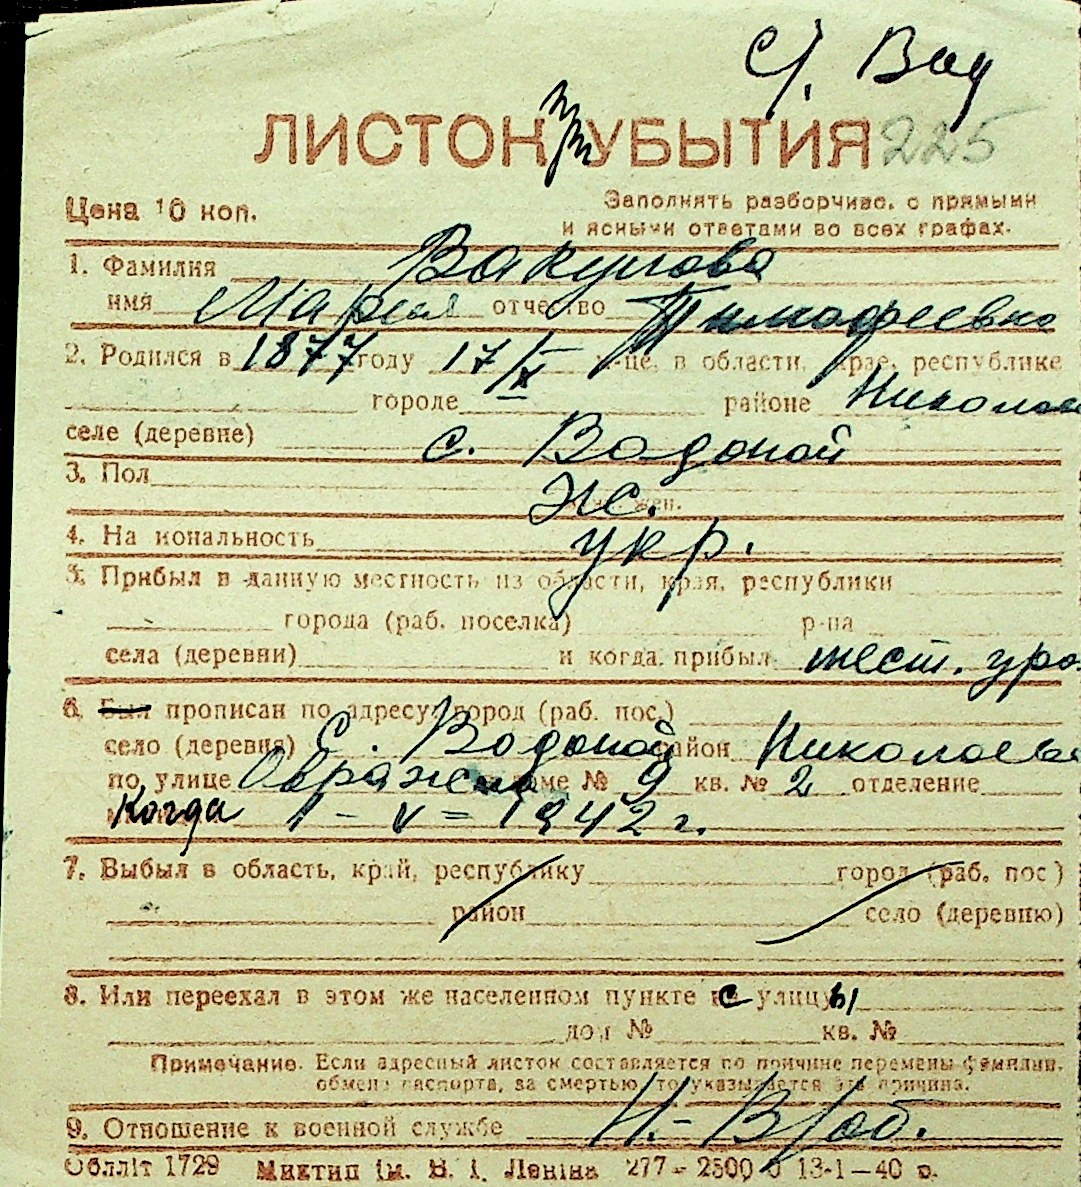 с. Вод
ЛИСТОК при УБЫТИЯ 225
Цена 10 коп. Заполнять разборчиво, с прямыми
и ясными ответами во всех графах.
1. Фамилия Вакулова
имя Мария отчество Тимофеевна
2. Родился в 1877 году 17/X в области, крае, республике
городе районе Николаев
селе (деревне) с. Водопой
3. Пол ж. жен.
4. На иональность укр.
5. Прибыл в данную местность из области, края, республики
города (раб. поселка) р-на
села (деревни) и когда прибыл мест. уро.
6. Был прописан по адресу: город (раб. пос.)
село (деревня) с. Водопой район Николаевск
по улице Овражная доме № 9 кв. № 2 отделение
Когда 1-V=1942 г.
7. Выбыл в область, край, республику город (раб. пос.)
район село (деревню)
8. Или переехал в этом же населенном пункте с улицы
дом № кв. №
Примечание. Если адресный листок составляется по причине перемены фамилии,
обмена паспорта, за смертью, то указывается эта причина.
9. Отношение к военной службе
Обллiт 1729 Миктип iм. В. І. Ленiна 277-2500 0 13-1-40 р.